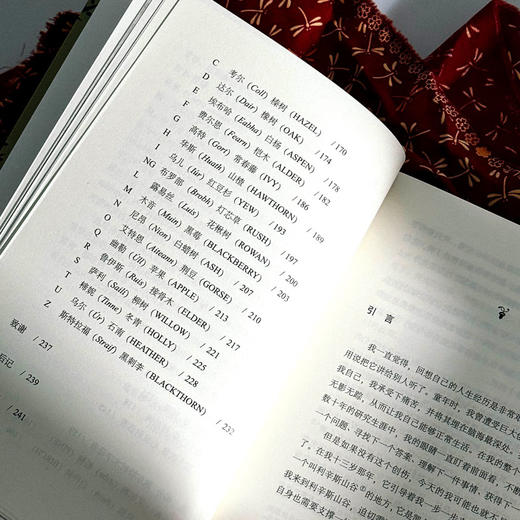 C 考尔 (Coll) 榛树 (HAZEL) / 170
D 达尔 (Dair) 橡树 (OAK) / 174
E 埃布哈 (Eabha) 白杨 (ASPEN) / 178
F 费尔恩 (Fearn) 桤木 (ALDER) / 182
G 高特 (Gort) 常春藤 (IVY) / 186
H 华斯 (Huath) 山楂 (HAWTHORN) / 189
I 乌儿 (Iúr) 红豆杉 (YEW) / 193
NG 布罗部 (Brobh) 灯芯草 (RUSH) / 197
L 露易丝 (Luis) 花楸树 (ROWAN) / 200
M 木音 (Muin) 黑莓 (BLACKBERRY) / 203
N 尼昂 (Nion) 白蜡树 (ASH) / 207
O 艾特恩 (Aiteann) 荆豆 (GORSE) / 210
Q 幽勒 (Úll) 苹果 (APPLE) / 213
R 鲁伊斯 (Ruis) 接骨木 (ELDER) / 217
S 萨利 (Sailí) 柳树 (WILLOW) / 221
T 梯妮 (Tinne) 冬青 (HOLLY) / 225
U 乌尔 (Úr) 石南 (HEATHER) / 228
Z 斯特拉福 (Straif) 黑刺李 (BLACKTHORN) / 232
致谢 / 237
后记 / 239
/ 241
引言
我一直觉得，回想自己的人生经历是非常
用说把它讲给别人听了。童年时，我曾遭受巨大
我自己，我承受下痛苦，并将其埋在脑海最深处，
无影无踪，从而让我自己能够正常生活。在我的整个
数十年的研究生涯中，我的眼睛一直盯着前面看，不断
一个问题，寻找下一个答案，理解下一件事情，获得下一
但是如果没有这个创伤，今天的我可能也就不
了。在我十三岁那年，它引导着我一步一步
一个叫利辛斯山谷的地方，它是我
我来到利辛斯山谷，迫切需
自身也需要支撑